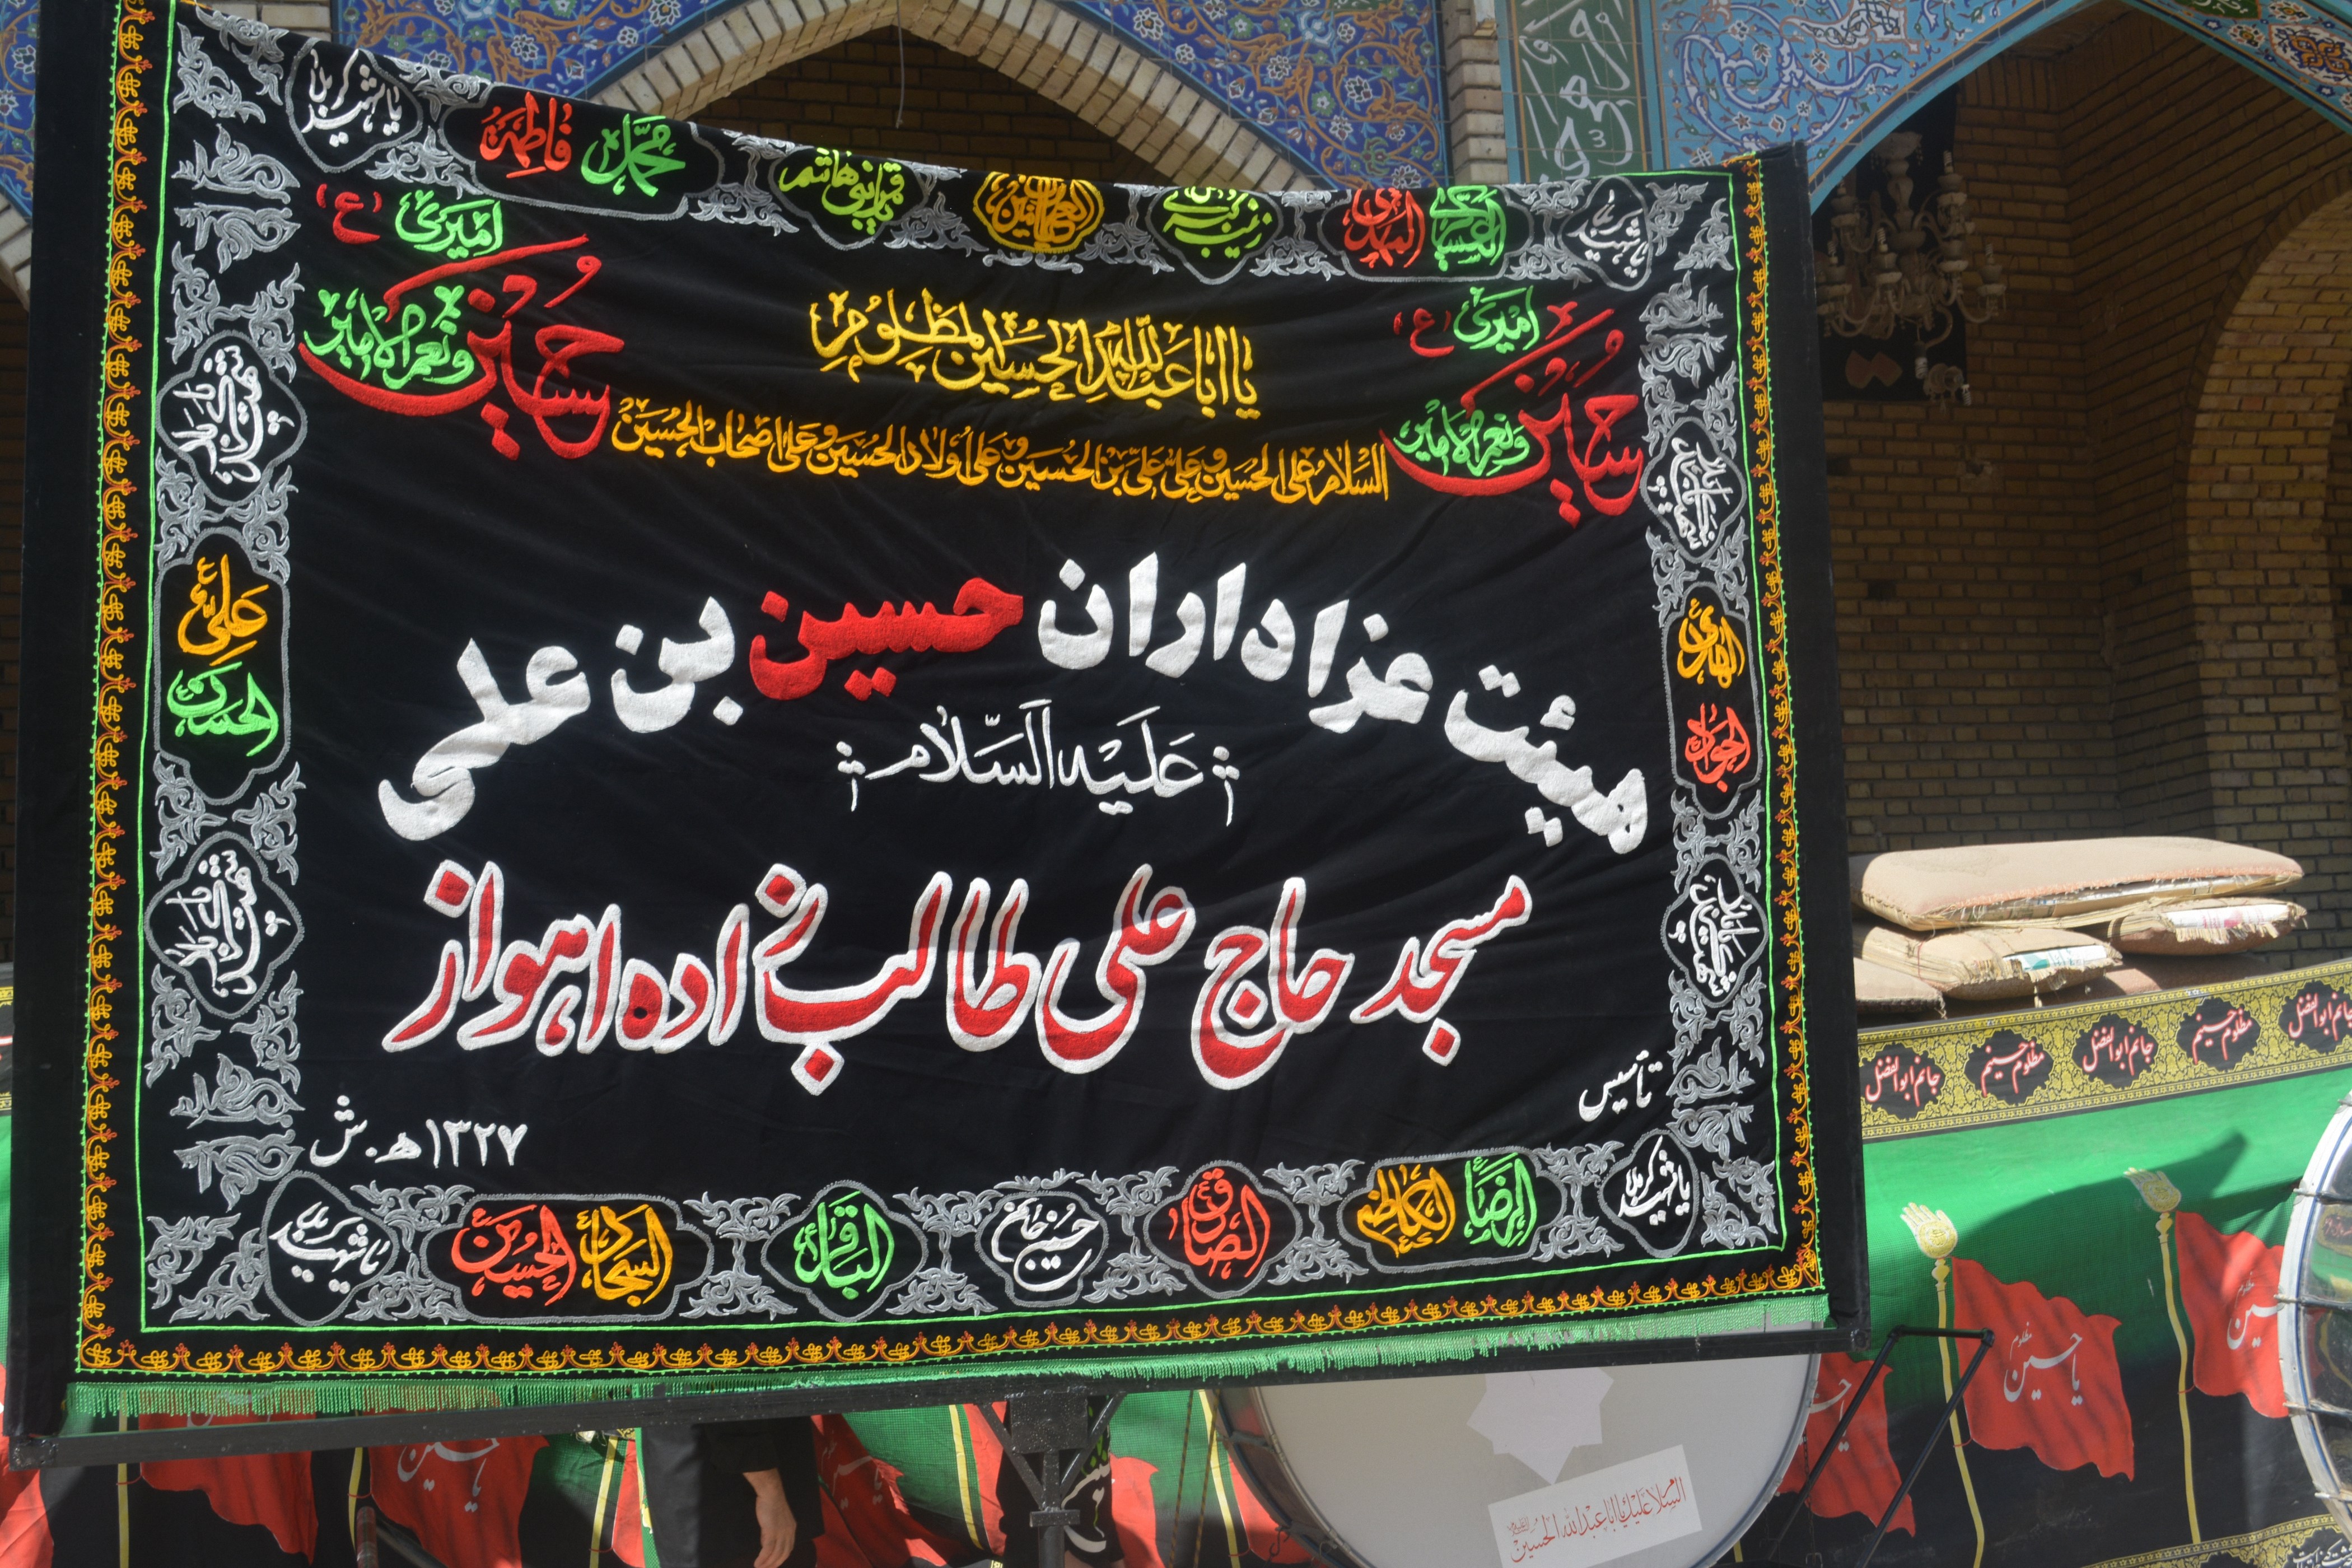 یا شهید کربلا
محمد فاطمة
یا قمر بنی هاشم
زینب کبری
العسکری الهادی
یا شهید کربلا
امیری حسین ونعم الامیر (ع)
یا اباعبدالله الحسین المظلوم
امیری حسین ونعم الامیر (ع)
السلام علی الحسین و علی علی بن الحسین و علی اولاد الحسین و علی اصحاب الحسین
هیئت عزاداران حسین بن علی
علیه السلام
مسجد حاج علی طالب زاده اهواز
تأسیس
۱۳۲۷ ه.ش
المهدی
الجواد
علی
الحسن
یا شهید کربلا
الرضا الکاظم
الصادق
حسین جانم
الباقر
السجاد الحسین
یا شهید کربلا
جانم ابوالفضل
مظلوم حسینم
جانم ابوالفضل
مظلوم حسینم
جانم ابوالفضل
یا حسین مظلوم
السلام علیک یا اباعبدالله الحسین